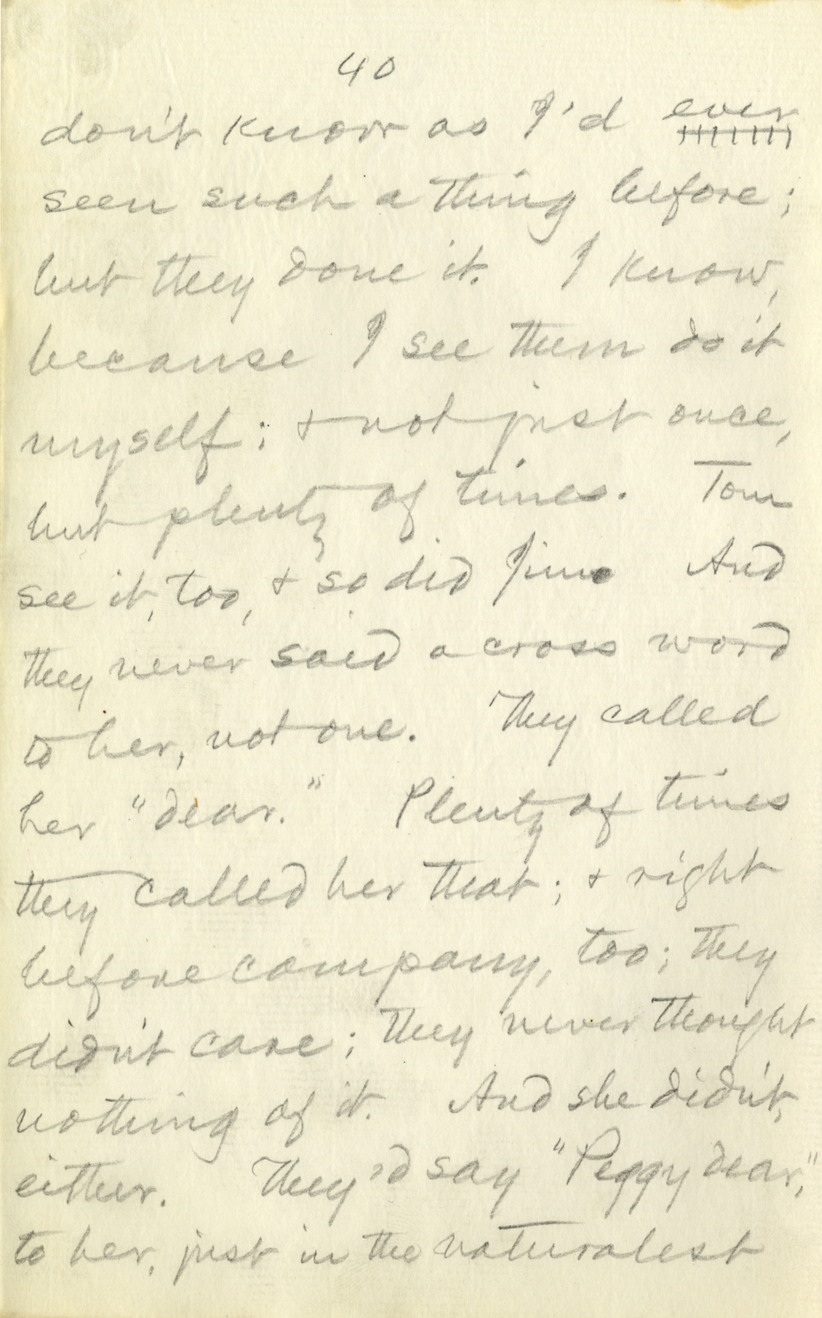 40
don't know as I'd ever
seen such a thing before;
but they done it. I know,
because I see them do it
myself; & not just once,
but plenty of times. Tom
see it, too, & so did Jim. And
they never said a cross word
to her, not one. They called
her "dear." Plenty of times
they called her that; & right
before company, too; they
didn't care; they never thought
nothing of it. And she didn't,
either. They'd say "Peggy dear,"
to her, just in the naturalest